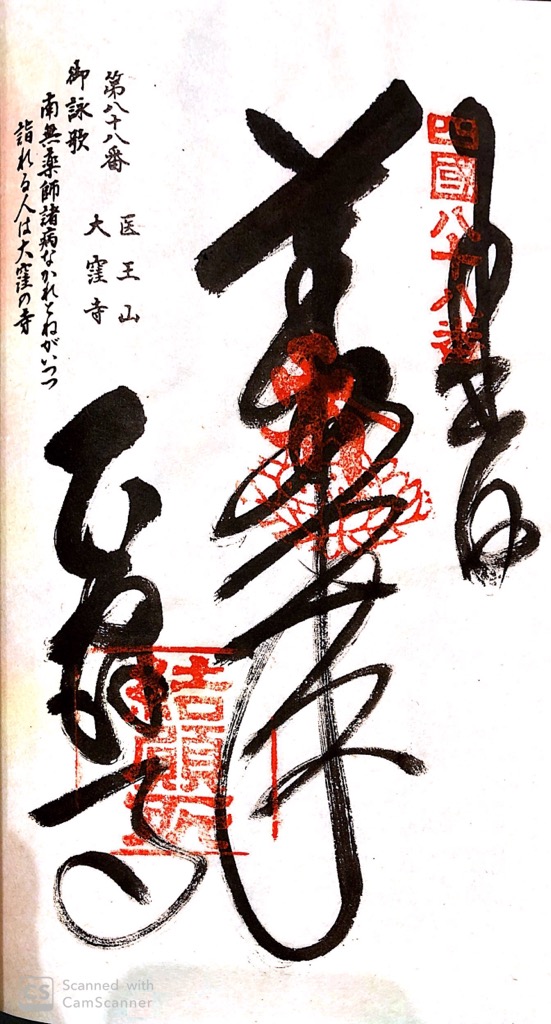 四国八十八番
奉納
薬師如来
第八十八番
医王山
大窪寺
御詠歌
南無薬師諸病なかれとねがいつつ
詣れる人は大窪の寺
大窪寺
結願所
Scanned with
CamScanner